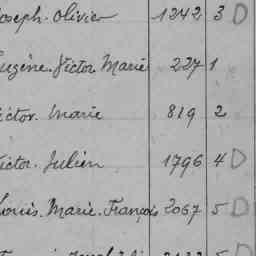 Joseph. Olivier 1242 3 D
Eugène. Victor. Marie 227 1
Victor. Marie 819 2
Victor. Julien 1796 4 D
Louis. Marie. François 2067 5 D